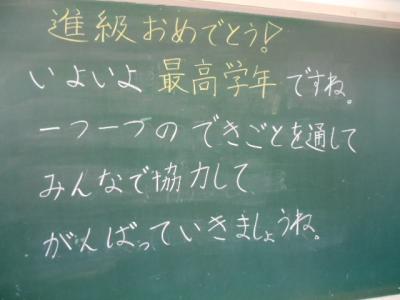 進級おめでとう!
いよいよ最高学年ですね。
一つ一つのできごとを通して
みんなで協力して
がんばっていきましょうね。